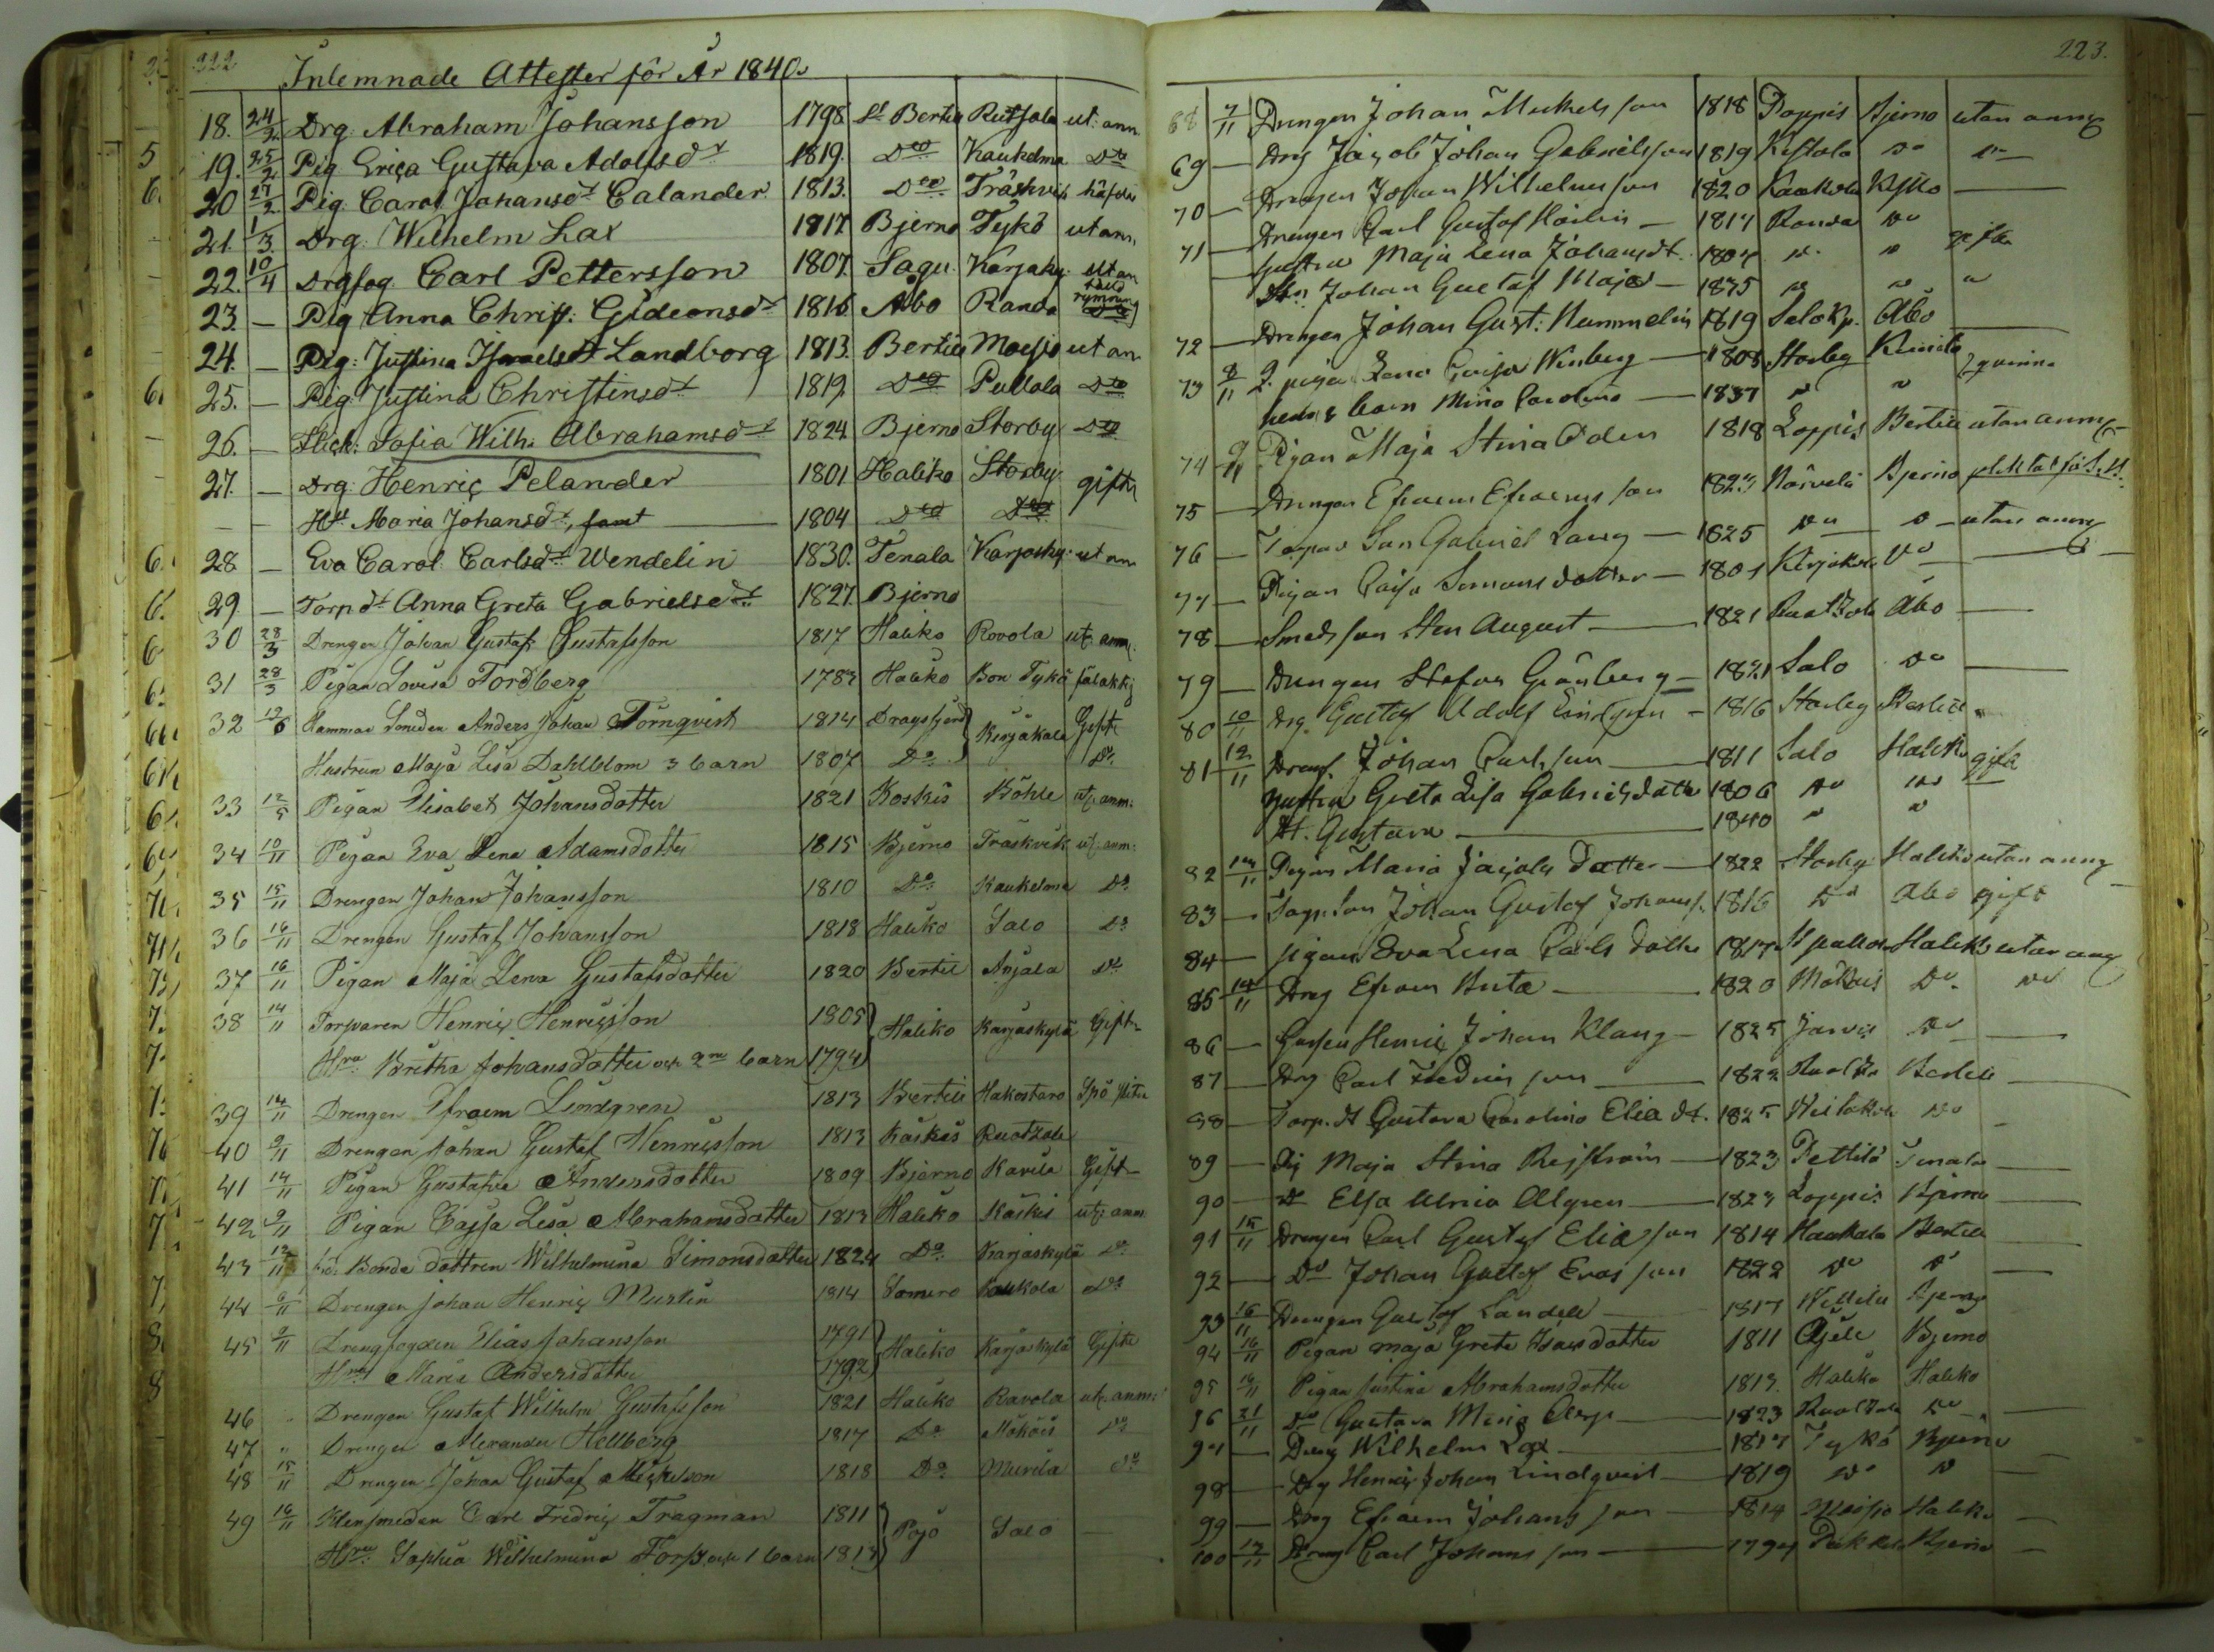 222
Inlemnade Attester för År 1840.
18. 24/2 Drg. Abraham Johansson 1798 St Bertils Rutsala ut. anm
19. 25/2 Pig Erica Gustava Adolfsdr 1819. Dto Kaukelma Dto
20 27/2 Pig. Carol. Johansdr Calander 1813. Dto Träskvik häfdad
21. 1/3 Drg. Wilhelm Lax 1817 Bjerno Tykö ut anm.
22. 10/4 Drgfog. Carl Pettersson 1807. Sagu. Karjaky. ut an
23. — Pig Anna Christ: Gideonsdr 1816 Åbo Randa rymning
24. — Pig: Justina Israelsdr Landborg 1813. Bertils Moisio ut an
25. — Pig: Justina Christinsdr 1819. Dto Pullola Dto
26. — Flick: Sofia Wilh. Abrahamsdr 1824 Bjerno Storby Dto
27. — Drg: Henric Pelander 1801 Haliko Storby gifta
— Hu Maria Johansdr, samt 1804 Dto Dto
28 — Eva Carol. Carlsdr Wendelin 1830. Tenala Karjaky: ut an
29. — Torp dr Anna Greta Gabrielsdr 1827. Bjerno
30 28/3 Drengen Johan Gustaf Gustafsson 1817 Haliko Rovola ut. anm.
31 28/3 Pigan Lovisa Fordberg 1783 Haliko Bon Tykö
32 12/6 Hammar Smeden Anders Johan Törnqvist 1814 Dragsfjerd Kirjakala Gift
Hustrun Maja Lisa Dahlblom 3 barn 1807 Do Do
33 12/5 Pigan Elisabet Johansdotter 1821 Koskis Böhle ut. anm:
34 10/11 Pigan Eva Lena Adamsdotter 1815 Bjerno Träskvik ut. anm:
35 15/11 Drengen Johan Johansson 1810 Do Kaukelma Do
36 16/11 Drengen Gustaf Johansson 1818 Haliko Salo Do
37 16/11 Pigan Maja Lena Gustafsdotter 1820 Bertil Anjala Do
38 14/11 Torparen Henric Henricsson 1805 Haliko Karjaskylä Gift
Hru Britha Johansdotter och 2ne barn 1794
39 14/11 Drengen Efraem Lindgren 1813 Bertils Hakostaro
40 9/11 Drengen Johan Gustaf Henricsson 1813 Kaskis Ruotzala
41 14/11 Pigan Gustafva Andersdotter 1809 Bjerno Kavila Gift
42 9/11 Pigan Cajsa Lisa Abrahamsdotter 1813 Haliko Kaskis ut. anm.
43 12/11 Bonde dottren Wilhelmina Simonsdotter 1824 Do Karjaskylä Do
44 6/11 Drengen Johan Henric Murlin 1814 Somero Kaukola Do
45 9/11 Drengfogden Elias Johansson 1791 Haliko Karjaskylä Gift
Hru Maria Andersdotter 1792
46 Drengen Gustaf Wilhelm Gustafsson 1821 Haliko Ravola ut. anm:
47 " Drengen Alexander Hellberg 1817 Do Mökois Do
48 15/11 Drengen Johan Gustaf Mickelson 1818 Do Murila Do
49 16/11 Klensmeden Carl Fredric Tragman 1811 Pojo Salo —
Hru Sophia Wilhelmina Forss och 1 barn 1813
223.
68 7/11 Drengen Johan Mickels son 1818 Poppis Bjerno utan anmg
69 — Drg Jacob Johan Gabrielsson 1819 Do Do
70 — Drengen Johan Wilhelmsson 1820 Kaukola Kisko —
71 — Drengen Carl Gustaf Hörlin — 1817 Randa Do
Hustru Maja Lena Johansdt. 1804 Do " gifta
Son Johan Gustaf Majas — 1835 " " "
72 — Drengen Johan Gust: Nummelin 1819 Salo Kp. Åbo
73 8/11 Q. pigan Lena Cajsa Winberg — 1808 Storby Kimito
hennes barn Mina Carolina — 1837 " "
74 9/11 Pigan Maja Stina Oden 1818 Loppis Bertils utan anmg
75 — Drengen Efraem Efraems son 1823 Bjerno
76 — Torpar Son Gabriel Lang — 1825 Do — D — utan anmg
77 — Pigan Caisa Simons dotter — 1801 Kirjakala Do
78 — Smeds son Sten August — 1821 Ruotzola Åbo —
79 — Drengen Stefan Grönberg — 1821 Salo Do —
80 10/11 Drg. Gustaf Adolf Lindgren — 1816 Storby Bertils
81 12/11 Drengf. Johan Carlsson — 1811 Salo Haliko gift
Hustru Greta Lisa Gabrielsdotter 1806 Do Do
Dt. Gustava — 1840 " "
82 14/11 Pigan Maria Jacobs dotter — 1822 Storby Haliko utan anmg
83 — Torp. Son Johan Gustaf Johanss. 1816 Do Åbo gift
84 — Pigan Eva Lena Carls dotter 1817 Haliko utan anmg
85 14/11 Drg Efraem Buta — 1820 Mökois Do. Do
86 — Gossen Henric Johan Klang — 1825 Jarvis Do —
87 — Drg Carl Fredrics son — 1822 Bertils —
88 — Torp. dt Gustava Carolina Elia dt. 1825 Do
89 — Pig Maja Stina Rejström — 1823 Pettilä Tenala —
90 — D Elsa Ulrica Algren — 1823 Loppis Bjerno —
91 15/11 Drengen Carl Gustaf Elias son 1814 Kaukola Bertils —
92 — Do Johan Gustaf Evas son 1822 Do D —
93 16/11 Drengen Gustaf Sandell — 1817 Bjerno
94 16/11 Pigan Maja Greta Isacsdotter 1811 Bjerno
95 16/11 Pigan Justina Abrahamsdotter 1813. Haliko Haliko
96 21/11 Do Gustava — 1823 Ruotzola Do —
97 — Dreng Wilhelm Lax — 1817 Tykö Bjerno
98 — Drg Henric Johan Lindqvist — 1819 Do D —
99 — Drg Efraem Johans son — 1814 Moisio Haliko —
100 17/11 Dreng Carl Johans son — 1794 Pukkila Bjerno —